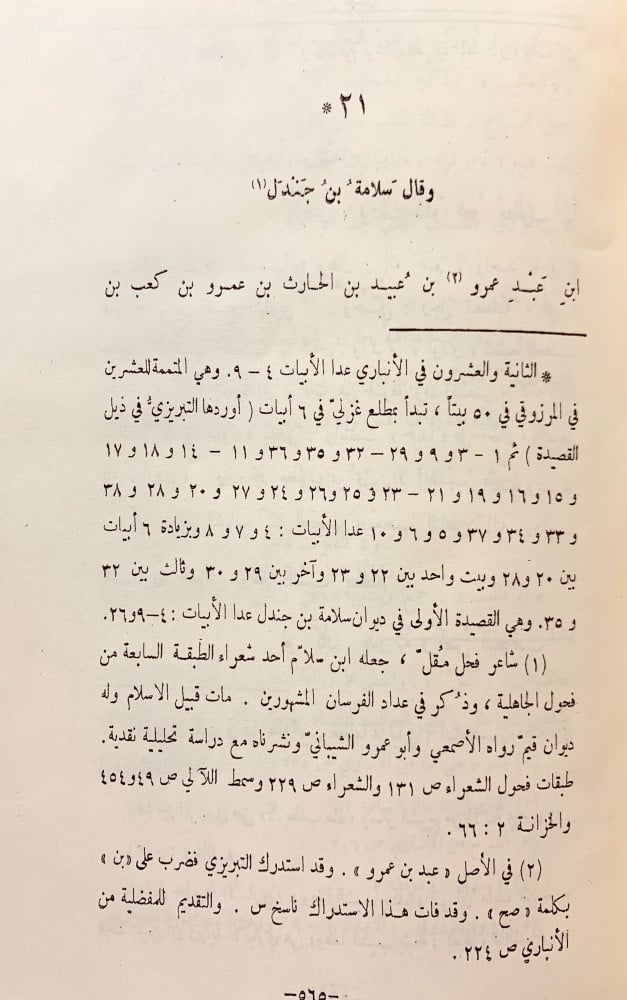 ٢١ *
وقال سَلامةُ بنُ جَنْدَل (١)
ابنِ عَبْدِ عمرو (٢) بن عُبيد بن الحارث بن عمرو بن كعب بن
* الثانية والعشرون في الأنباري عدا الأبيات ٤ - ٩. وهي المتممة للعشرين
في المرزوقي في ٥٠ بيتاً ، تبدأ بمطلع غزليّ في ٦ أبيات ( أوردها التبريزيُّ في ذيل
القصيدة ) ثم ١ - ٣ و ٩ و ٢٩ - ٣٢ و ٣٥ و ٣٦ و ١١ - ١٤ و ١٨ و ١٧
و ١٥ و ١٦ و ١٩ و ٢١ - ٢٣ و ٢٥ و ٢٦ و ٢٤ و ٢٧ و ٢٠ و ٢٨ و ٣٨
و ٣٣ و ٣٤ و ٣٧ و ٥ و ٦ و ١٠ عدا الأبيات : ٤ و ٧ و ٨ وبزيادة ٦ أبيات
بين ٢٠ و ٢٨ وبيت واحد بين ٢٢ و ٢٣ وآخر بين ٢٩ و ٣٠ وثالث بين ٣٢
و ٣٥. وهي القصيدة الأولى في ديوان سلامة بن جندل عدا الأبيات : ٤-٩ و ٢٦.
(١) شاعر فحل مُقلّ ، جعله ابن سلاّم أحد شعراء الطبقة السابعة من
فحول الجاهلية ، وذُكر في عداد الفرسان المشهورين . مات قبيل الاسلام وله
ديوان قيّم رواه الأصمعي وأبو عمرو الشيبانيّ ونشرناه مع دراسة تحليلية نقدية.
طبقات فحول الشعراء ص ١٣١ والشعراء ص ٢٢٩ وسمط اللآلي ص ٤٩ و ٤٥٤
والخزانة ٢ : ٦٦ .
(٢) في الأصل « عبد بن عمرو » . وقد استدرك التبريزي فضرب على «بن »
بكلمة « صح » . وقد فات هذا الاستدراك ناسخ س . والتقديم للمفضلية من
الأنباري ص ٢٢٤ .
-٥٦٥-